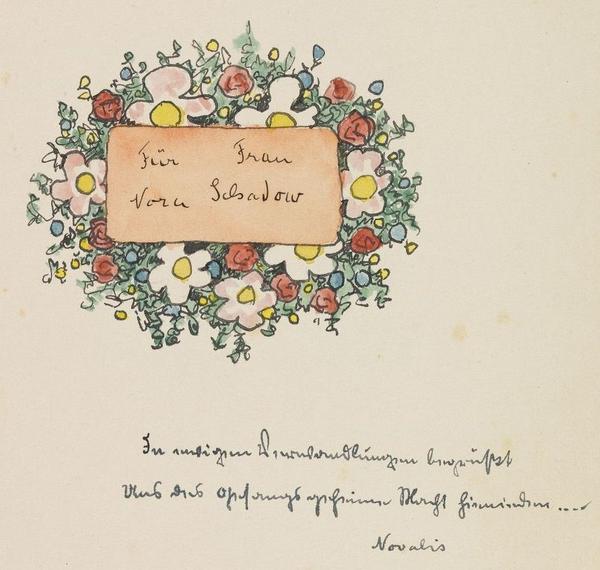 Für Frau
Nora Schadow
In ewigen Verwandlungen begrüßt
Uns des Gesangs geheime Macht hienieden....
Novalis